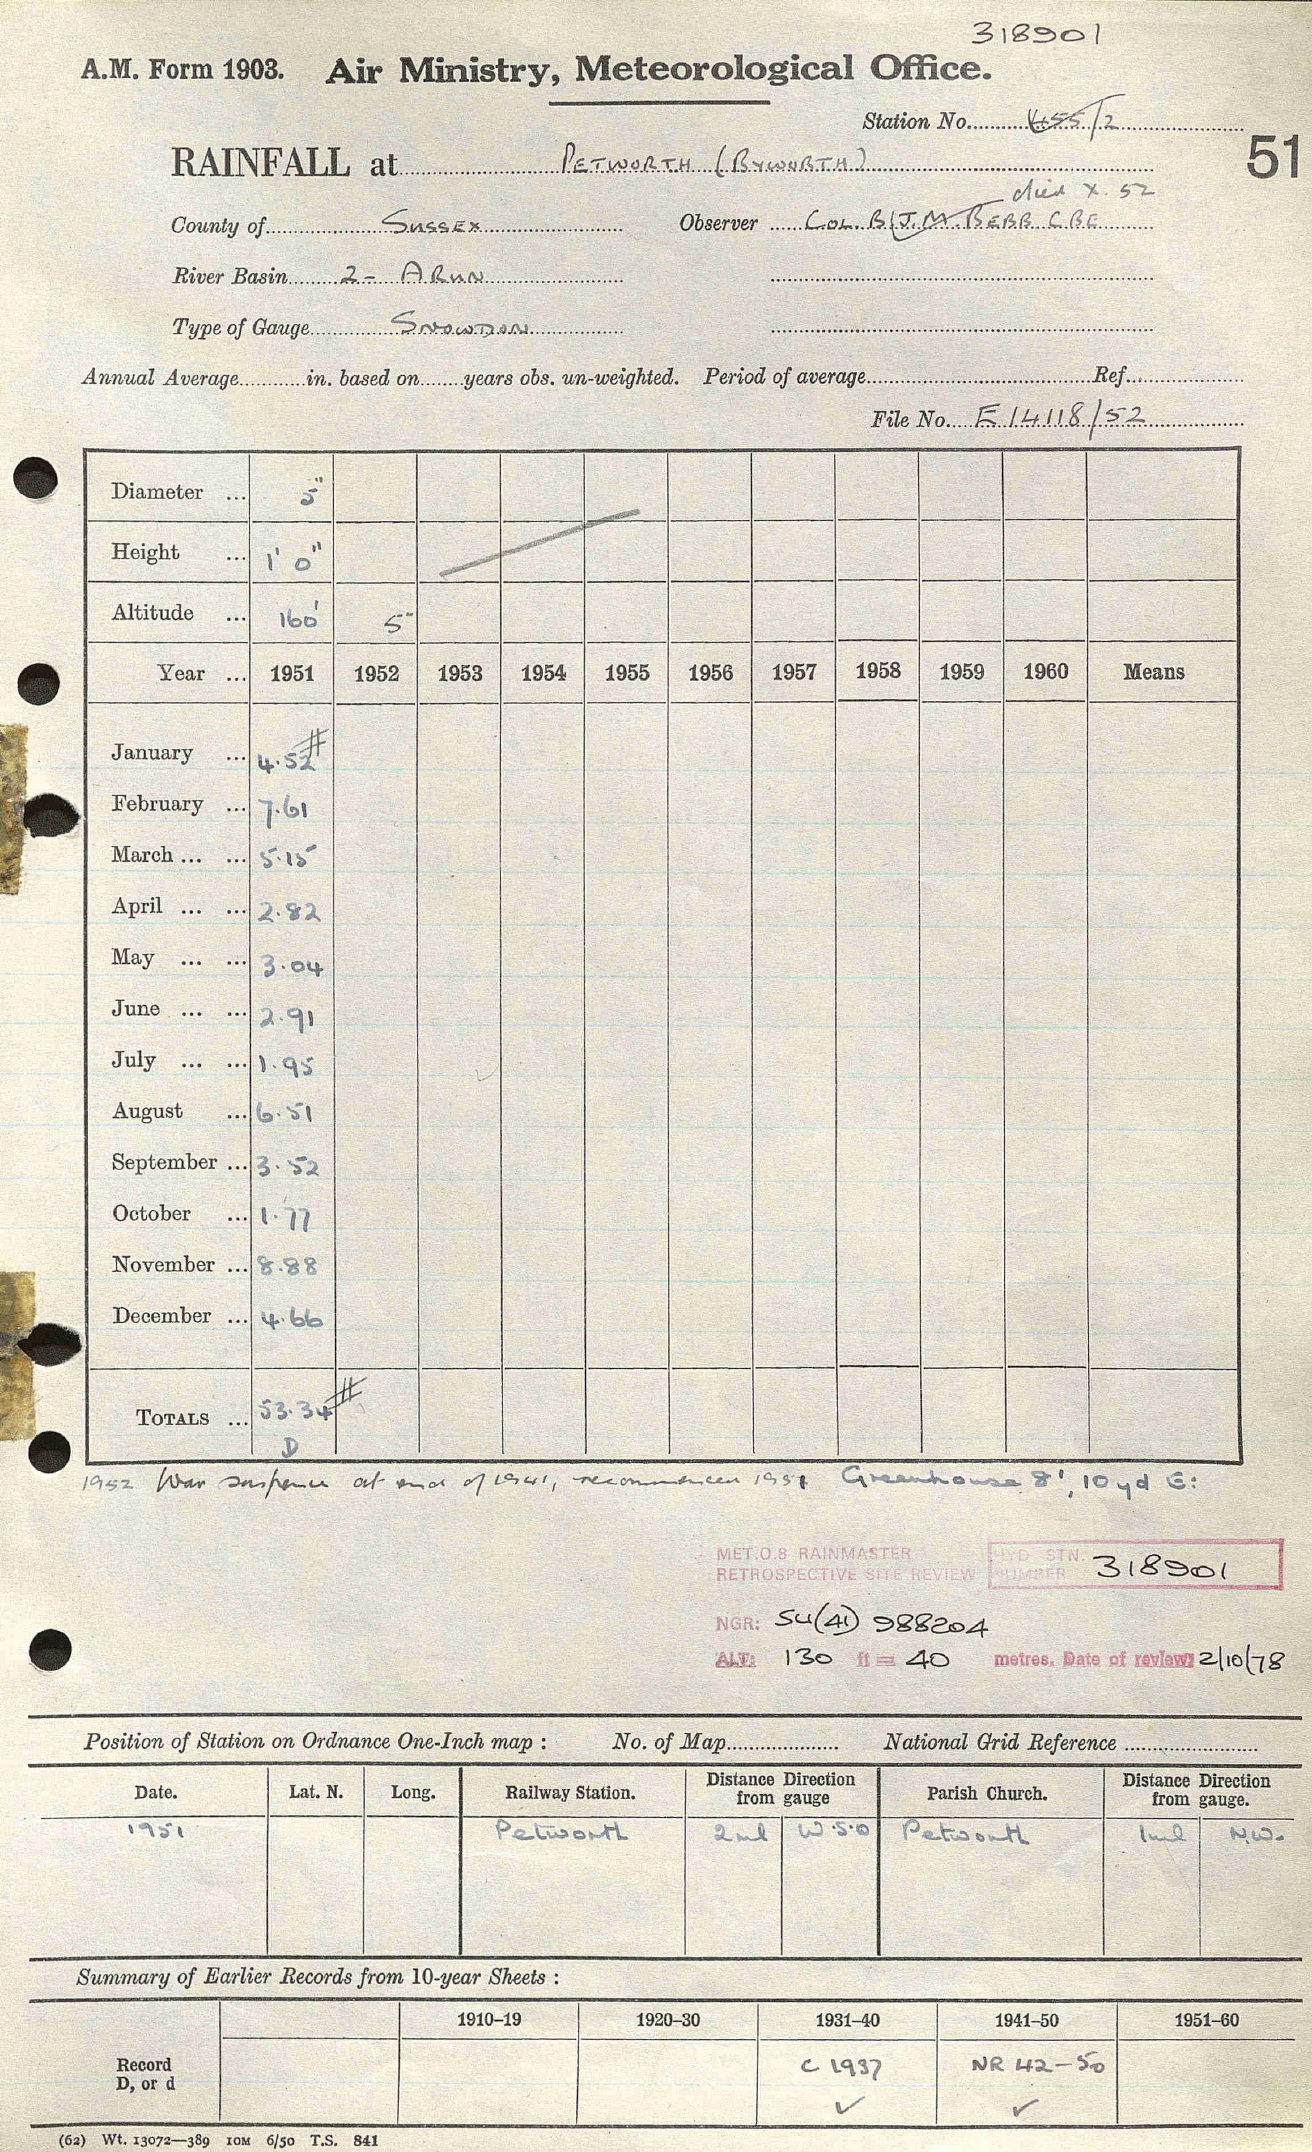 318901
A.M. Form 1903. Air Ministry, Meteorological Office.
Station No. 455/2
51
RAINFALL at PETWORTH (BYWORTH)
died X. 52
County of SUSSEX Observer COL. B.J.M. BEBB CBE
River Basin 2- ARUN
Type of Gauge SNOWDON
Annual Average in. based on years obs. un-weighted. Period of average Ref.
File No. E 14118/52
Diameter ... 5"
Height ... 1' 0"
Altitude ... 160' 5"
Year ... 1951 1952 1953 1954 1955 1956 1957 1958 1959 1960 Means
January ... 4.52 #
February ... 7.61
March ... ... 5.15
April ... ... 2.82
May ... ... 3.04
June ... ... 2.91
July ... ... 1.95
August ... 6.51
September ... 3.52
October ... 1.77
November ... 8.88
December ... 4.66
TOTALS ... 53.34 #
D
1952 War suspence at end of 1941, recommenced 1951 Greenhouse 8', 10 yd E:
MET.O.8 RAINMASTER HYD STN.
RETROSPECTIVE SITE REVIEW NUMBER 318901
NGR: SU(41) 988204
ALT: 130 ft = 40 metres. Date of review: 2/10/78
Position of Station on Ordnance One-Inch map : No. of Map National Grid Reference
Date. Lat. N. Long. Railway Station. Distance Direction from gauge Parish Church. Distance Direction from gauge.
1951 Petworth 2ml W.S.O Petworth 1ml N.W.
Summary of Earlier Records from 10-year Sheets :
1910–19 1920–30 1931–40 1941–50 1951–60
Record D, or d C 1937 NR 42–50
✓ ✓
(62) Wt. 13072—389 10M 6/50 T.S. 841